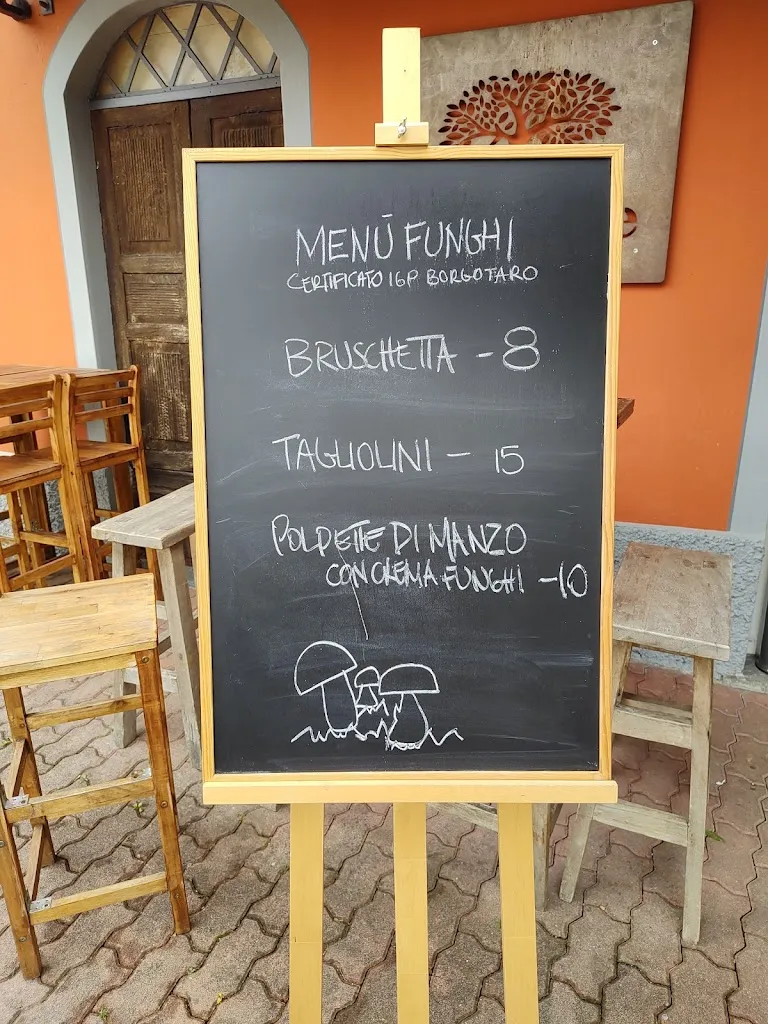 MENÙ FUNGHI
CERTIFICATO IGP BORGOTARO
BRUSCHETTA - 8
TAGLIOLINI - 15
POLPETTE DI MANZO
CON CREMA FUNGHI - 10